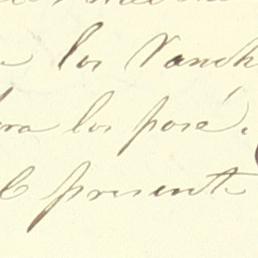 los Ranch
ra los posé.
El presente